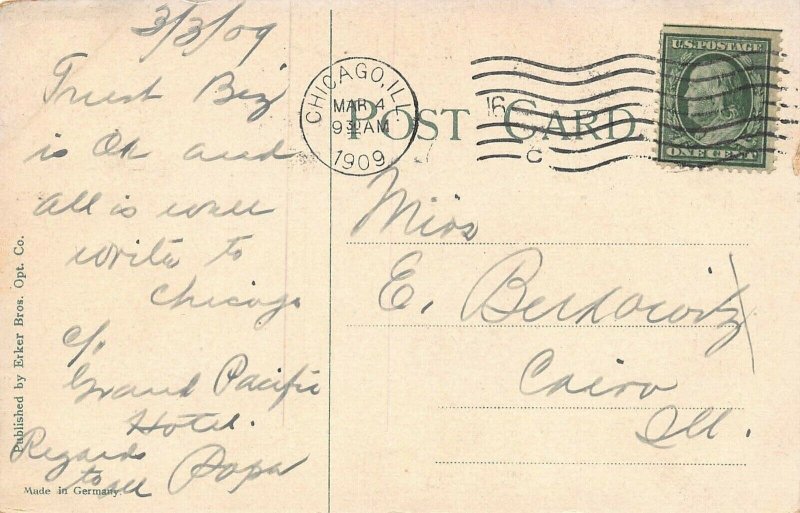 3/3/09
Trust Biz
is Ok and
all is well
write to
Chicago
c/o
Grand Pacific
Hotel.
Regards
to all Papa
Published by Erker Bros. Opt. Co.
Made in Germany.
CHICAGO, ILL.
MAR 4
9 30 AM
1909
16
C
POST CARD
U.S. POSTAGE
ONE CENT
Miss
E. Berkowitz
Cairo
Ill.